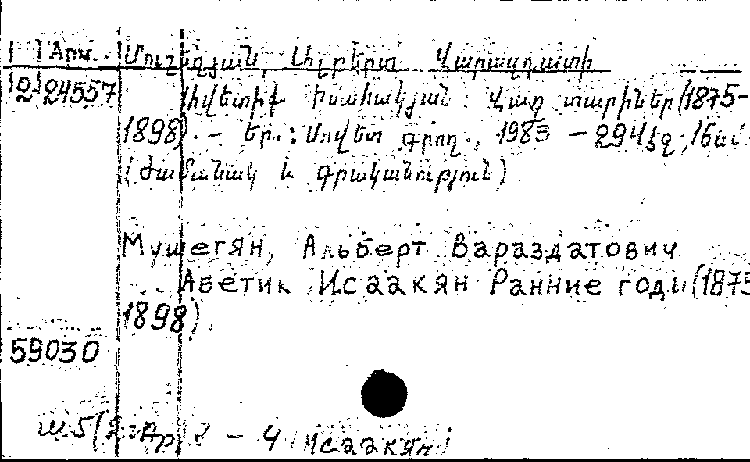 Арм. Մուշեղյան, Ալբերտ Վարազդատի
2 24557 Ավետիք Իսահակյան: Վաղ տարիներ (1875-
1898). – Եր.: Սովետ. գրող, 1983 – 294 էջ, 16
(Ժամանակ և գրականություն)
Мушегян, Альберт Вараздатович
Аветик Исаакян Ранние годы (1875
1898).
59030
– 4 Исаакян